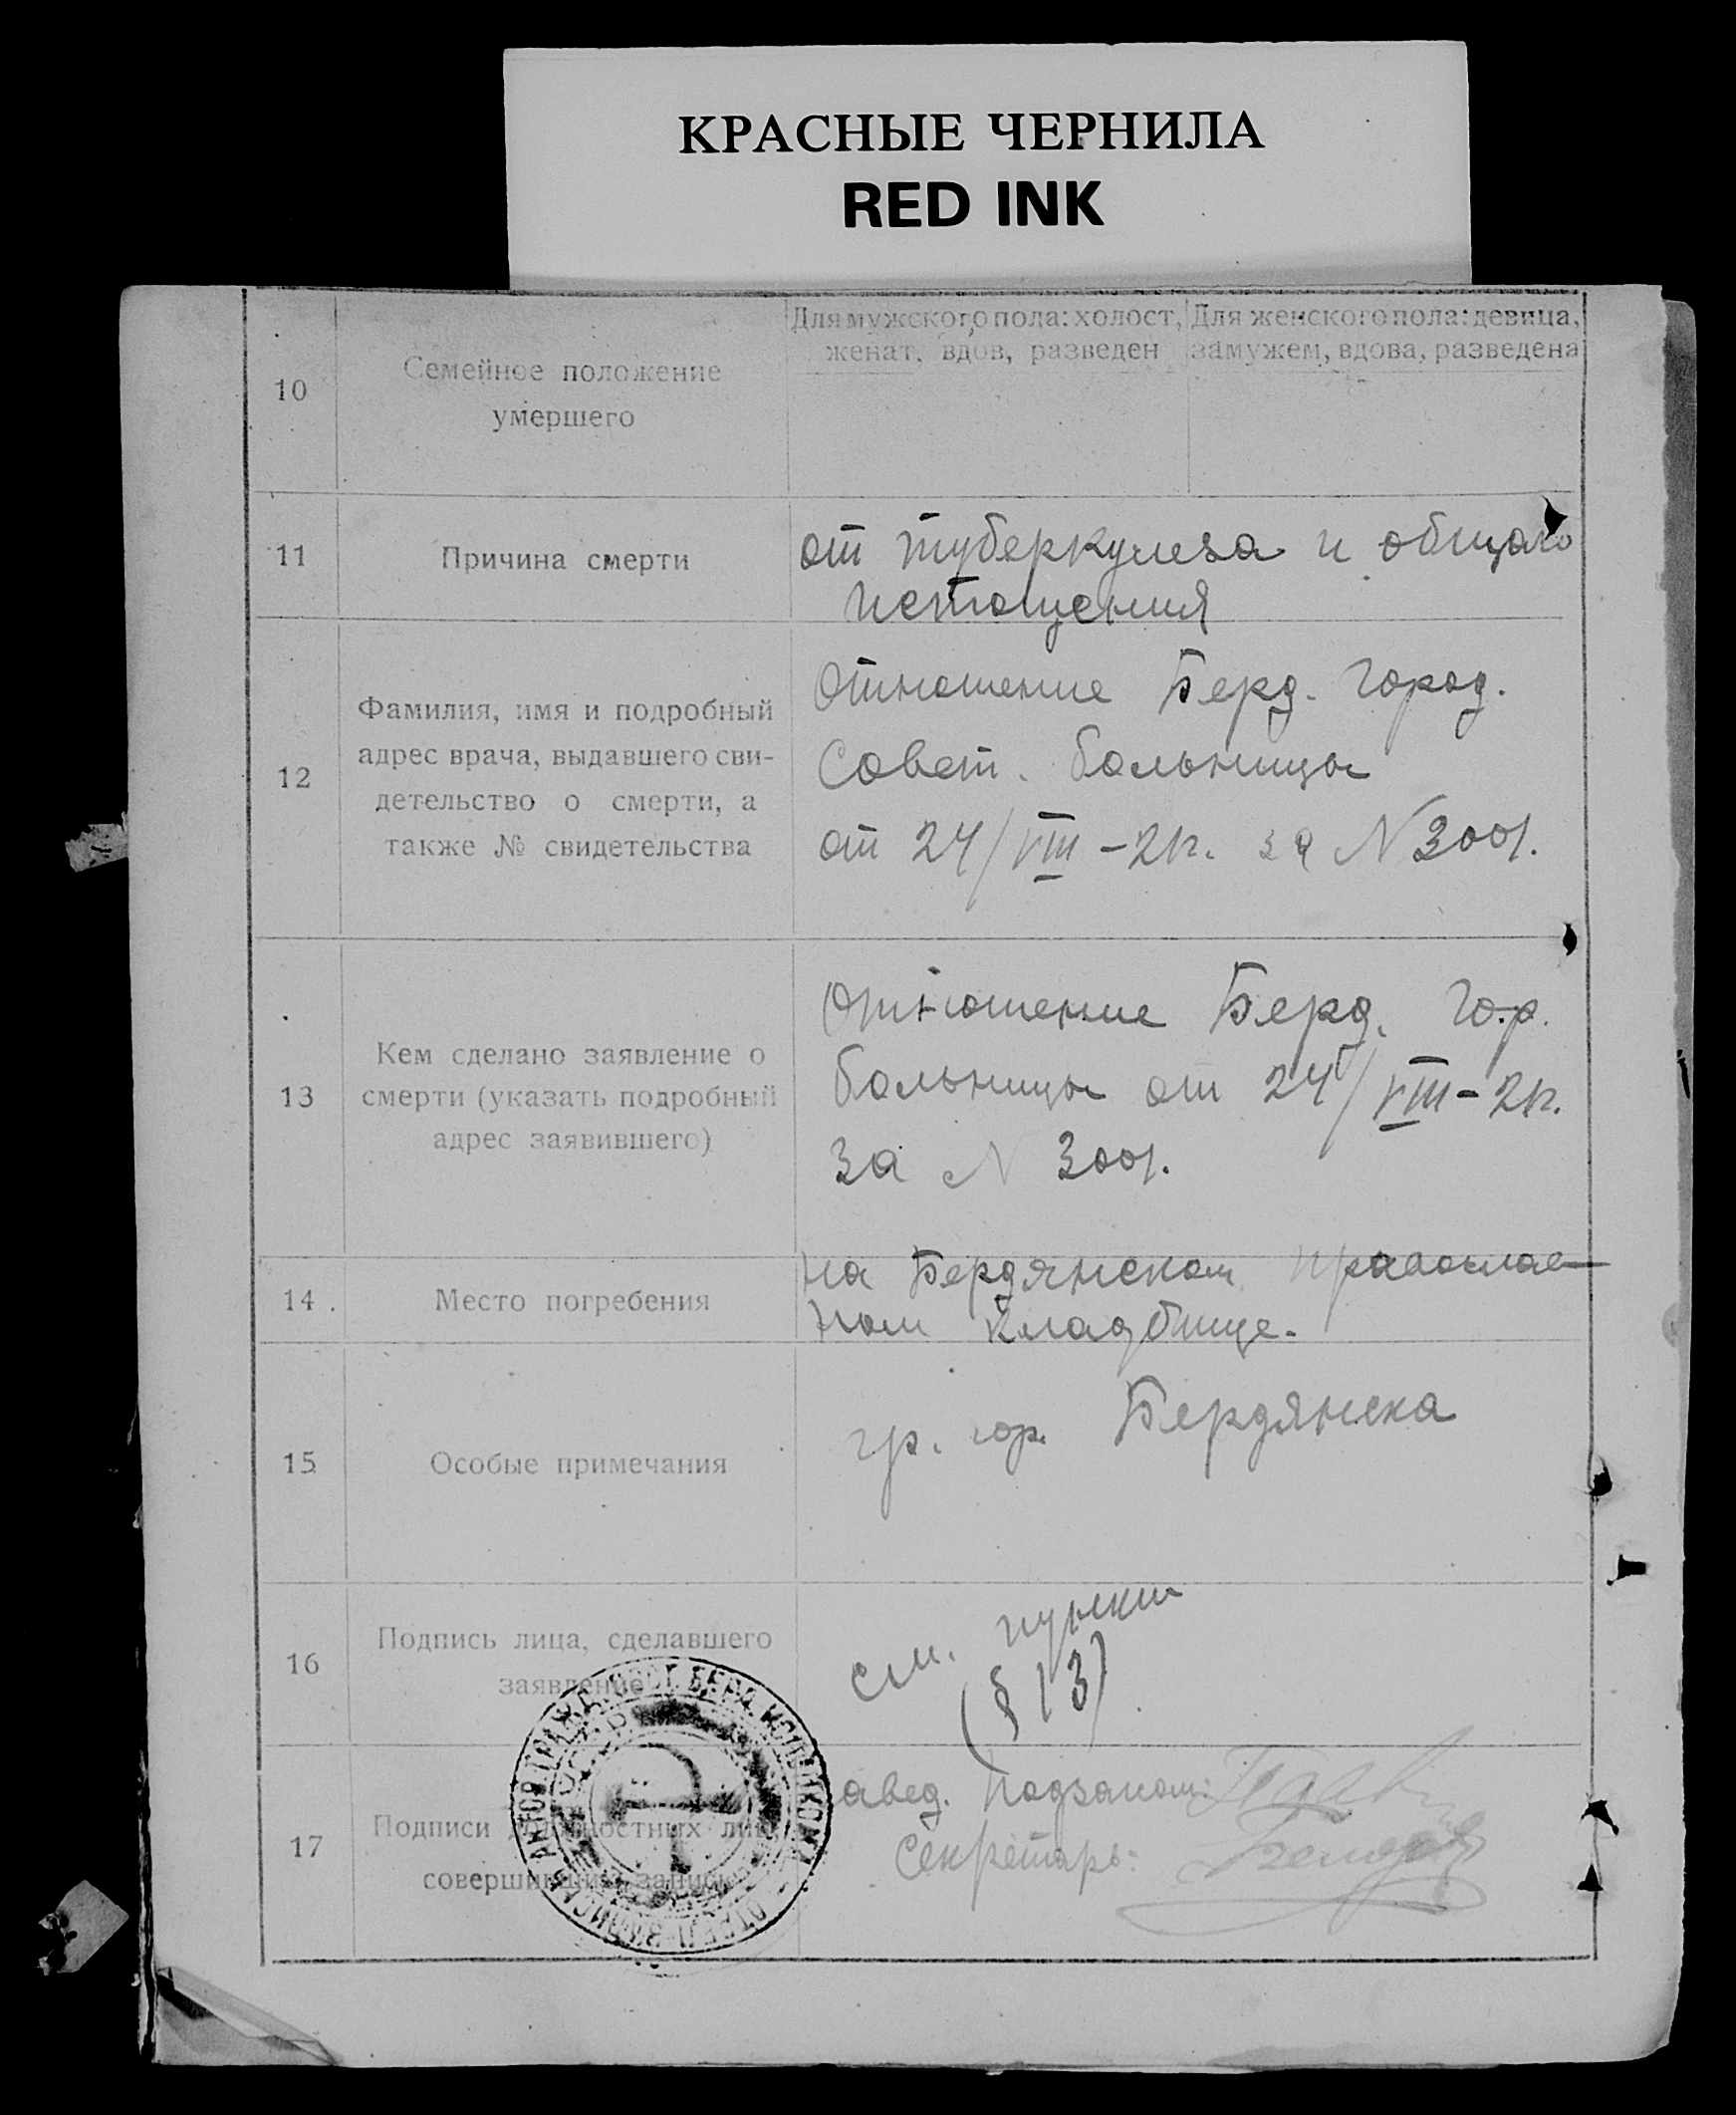 КРАСНЫЕ ЧЕРНИЛА
RED INK
10
Семейное положение
умершего
Для мужского пола: холост,
женат, вдов, разведен
Для женского пола: девица,
замужем, вдова, разведена
11
Причина смерти
от туберкулеза и общаго
истощения
12
Фамилия, имя и подробный
адрес врача, выдавшего сви-
детельство о смерти, а
также № свидетельства
Отношение Берд. Город.
Совет. больницы
от 24/VIII-21г. за N 3001.
13
Кем сделано заявление о
смерти (указать подробный
адрес заявившего)
Отношение Берд. Гор.
больницы от 24/VIII-21г.
за N 3001.
14.
Место погребения
на Бердянском православ-
ном кладбище.
15
Особые примечания
гр. гор. Бердянска
16
Подпись лица, сделавшего
заявление
см. пункт
(§ 13)
17
Подписи должностных лиц,
совершивших запись
авед. Подзаком:
Секретарь: